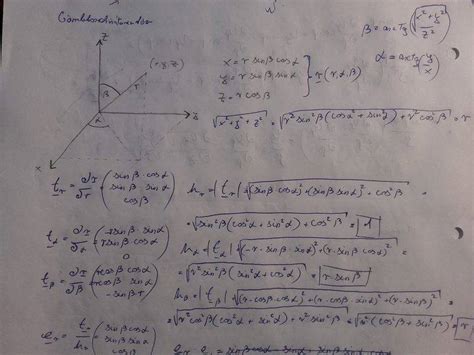 β = arcTg (√(x²+y²)/z²)
z
(x, y, z)
x = r sinβ cosα
y = r sinβ sinα } r (r, α, β)
z = r cosβ
α = arcTg (y/x)
β
r
α
x
y
√(x²+y²+z²) = √(r² sin²β (cos²α + sin²α) + r² cos²β) = r
t_r = ∂r/∂r = (sinβ·cosα
sinβ·sinα
cosβ)
h_r = |t_r| = √((sinβ·cosα)² + (sinβ sinα)² + cos²β) =
= √(sin²β (cos²α + sin²α) + cos²β) = 1
t_α = ∂r/∂α = (-r sinβ·sinα
r sinβ cosα
0)
h_α = |t_α| = √((-r·sinβ·sinα)² + (r·sinβ cosα)²) =
= √(r² sin²β (sin²α + cos²α)) = r·sinβ
t_β = ∂r/∂β = (r cosβ cosα
r cosβ sinα
-sinβ·r)
h_β = |t_β| = √((r·cosβ·cosα)² + (r·cosβ·sinα)² + (r·sinβ)²) =
= √(r² cos²β (cos²α + sin²α) + r² sin²β) = √(r² (cos²β + sin²β)) = r
e_r = t_r/h_r = (sinβ cosα
sinβ sinα
cosβ)